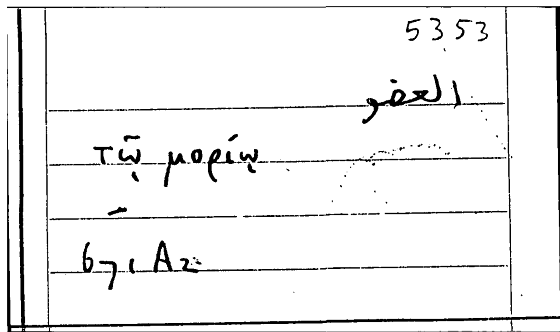 5353
العضو
τῷ μορίῳ
67, A2